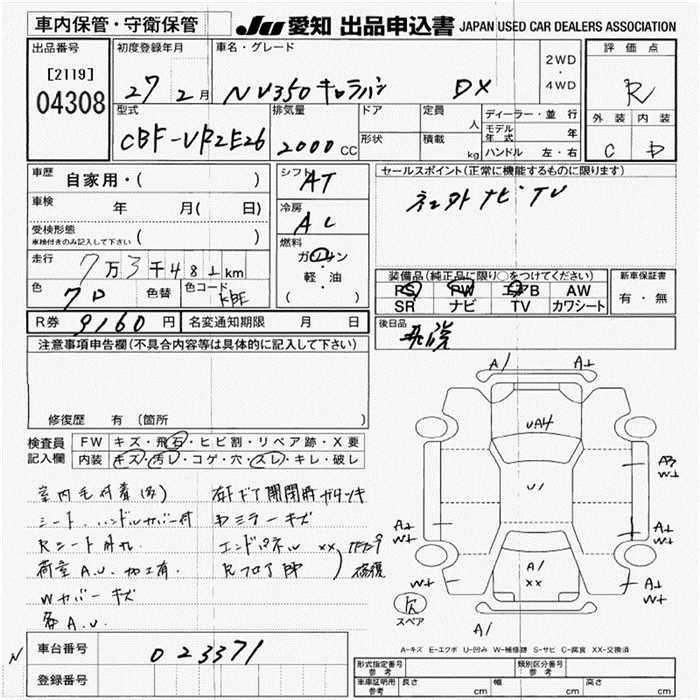 車内保管・守衛保管
JU 愛知 出品申込書 JAPAN USED CAR DEALERS ASSOCIATION
出品番号
[2119]
04308
初度登録年月
27 2月
車名・グレード
NV350 キャラバン DX
2WD
・
4WD
評価点
R
外装 内装
C D
型式
CBF-VR2E26
排気量
2000CC
ドア
形状
定員
人
積載
kg
ディーラー・並行
モデル年式 年
ハンドル 左・右
車歴
自家用・( )
車検
年 月( 日)
受検形態
車検付きのみ記入して下さい ( )
走行
7万3千481km
色
色替
色コード
KBE
R券 9160円
名変通知期限 月 日
シフト
AT
冷房
AC
燃料
ガソリン
・
軽・油
( )
セールスポイント(正常に機能するものに限ります)
社外ナビ・TV
装備品(純正品に限り○をつけてください)
PS PW エアB AW
SR ナビ TV カワシート
新車保証書
有・無
後日品
注意事項申告欄(不具合内容等は具体的に記入して下さい)
修復歴 有(箇所 )
検査員
記入欄
FW キズ・飛石・ヒビ割・リペア跡・X要
内装 キズ・汚レ・コゲ・穴・スレ・キレ・破レ
シート、ハンドルカバー付
Rシート外れ
荷室A.U. 加工有
Wカバーキズ
各A.U.
右ドア開閉時ガタツキ
Dミラーキズ
エンドパネルXX
Rフロア凹
修復
A1
UA4
U1
A1
XX
スペア
A1
A-キズ E-エクボ U-凹み W-補修跡 S-サビ C-腐食 XX-交換済
N
車台番号
023371
登録番号
形式指定番号
参考
類別区分番号
参考
車庫証明用
参考
長さ cm
幅 cm
高さ cm